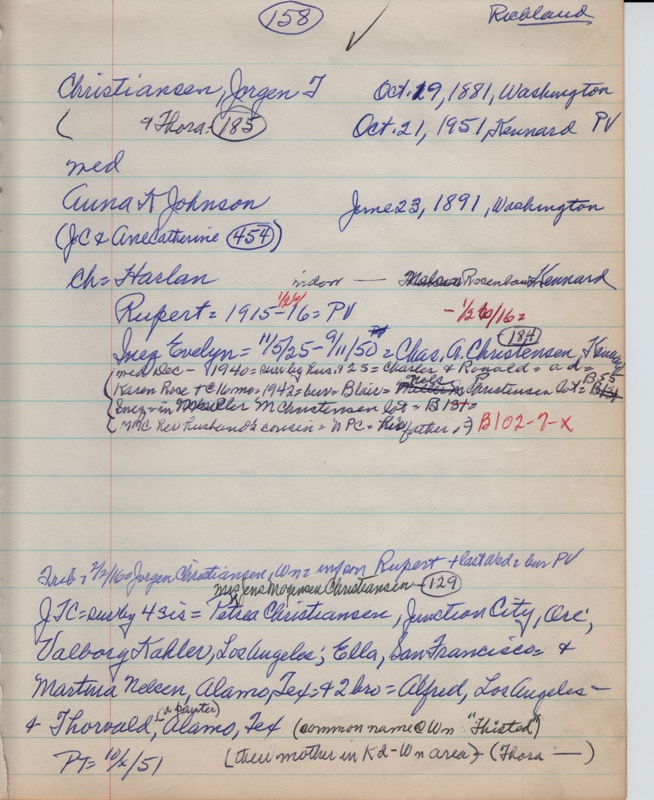 158 Richland
Christiansen, Jorgen T Oct. 19, 1881, Washington
( & Thora: 185 Oct. 21, 1951, Kennard PV
med
Anna K Johnson June 23, 1891, Washington
(JC & Ane Catherine 454)
ch = Harlan indoor — Rosenbaum Kennard
Rupert = 1915-16 = PV 1/26/ - 1/26/16 =
Inez Evelyn = 11/5/25 - 9/11/50 = Chas. A. Christensen, Kennard 184
med Dec - 1940 = surv by hus. & 2 S = Charles & Ronald = a d =
Karen Rose + @ 16 mo = 1942 = bur = Blair = Christensen lot = B
Inez = in M Christensen lot = B
MMC Rev husband's cousin = NPC = his father, ?) B102-7-X
Trib = 2/2/16 = Jorgen Christiansen, Wn = inf son Rupert + last Wed = bur PV
mrs Jens Mogensen Christiansen 129
JTC = sur by 4 sis = Petrea Christiansen, Junction City, Ore,
Valborg Kahler, Los Angeles; Ella, San Francisco = &
Martina Nelsen, Alamo, Tex = & 2 bro = Alfred, Los Angeles -
& Thorvald, (a painter) Alamo, Tex (common name @ Wn "Thisted")
PT = 10/x/51 (their mother in Kd-Wn area) (Thora —)